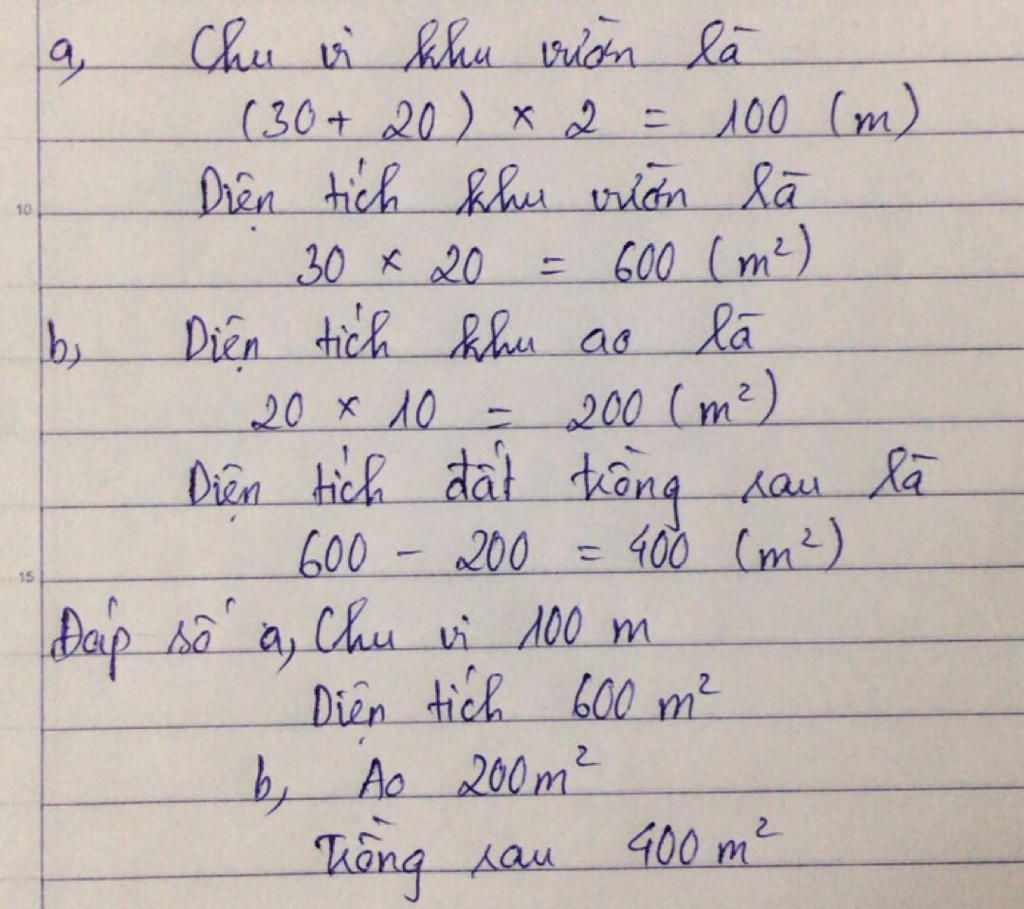 a, Chu vi khu vườn là
(30 + 20) × 2 = 100 (m)
Diện tích khu vườn là
10
30 × 20 = 600 (m²)
b, Diện tích khu ao là
20 × 10 = 200 (m²)
Diện tích đất trồng sau là
600 - 200 = 400 (m²)
15
Đáp số a, Chu vi 100 m
Diện tích 600 m²
b, Ao 200m²
Trồng sau 400 m²